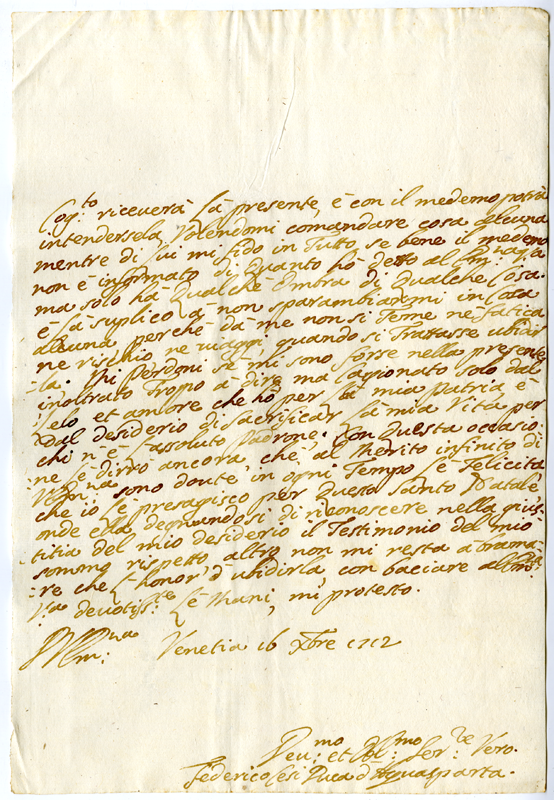 Cog.to riceverà la presente, è con il medemo potrà
intendersela Volendomi comandare cosa alcuna
mentre di lui mi fido in Tutto, se bene il medemo
non è informato di quanto hò detto al
ma solo hà qualche ombra di qualche cosa.
e la suplico à non sparambiarmi in cosa
alcuna perche dà me non si Teme ne fatica
ne rischio, ne viaggi, quando si Trattasse ubidir
-la. Mi Perdoni se mi sono forse nella presente
inoltrato Tropo à dire, ma cagionato solo dal
Zelo et amore che hò per la mia Patria è
Dal desiderio di sacrificar la mia Vita per
chi n'è l'assoluto Padrone. Con questa occasio:
ne le dirrò ancora che al Merito infinito di
sono doute, in ogni Tempo le felicità
che io le presagisco per questo santo Natale
onde ella degnandosi di riconoscere nella gius
titia del mio desiderio il Testimonio del mio
sommo rispetto, altro non mi resta a brama
re che l'honor d'ubidirla, con baciare all
devotiss.te le Mani, mi protesto.
Venetia 16 Xbre 1712
Deu.mo et Obl.mo Ser.re Vero.
Federico Cesi Duca d'Aquasparta.